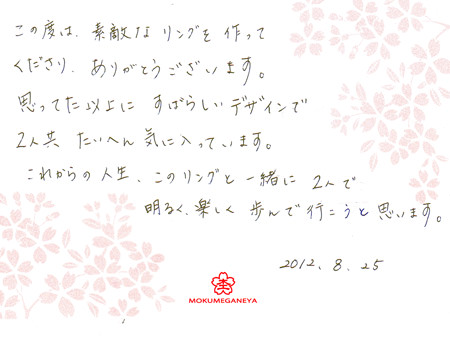 この度は、素敵な リングを 作って
くださり、ありがとうございます。
思ってた以上に すばらしい デザインで
2人共 たいへん 気に入っています。
これからの人生、このリングと 一緒に 2人で
明るく、楽しく 歩んで 行こうと 思います。
2012. 8. 25
MOKUMEGANEYA